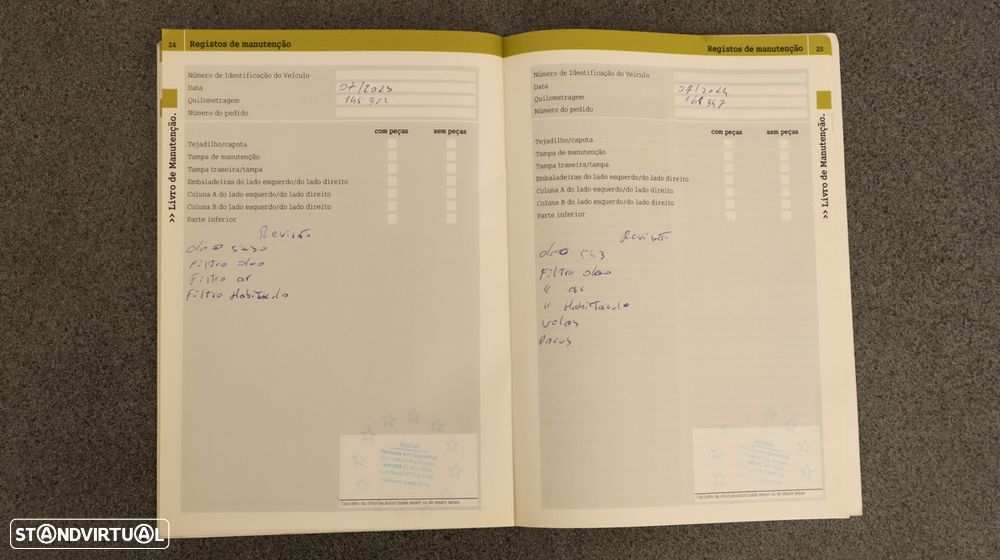 24 Registos de manutenção
Número de Identificação do Veículo
Data 07/2023
Quilometragem 145 322
Número do pedido
com peças sem peças
Tejadilho/capota
Tampa de manutenção
Tampa traseira/tampa
Embaladeiras do lado esquerdo/do lado direito
Coluna A do lado esquerdo/do lado direito
Coluna B do lado esquerdo/do lado direito
Parte inferior
Revisão
oleo 5w30
Filtro oleo
Filtro ar
Filtro Habitaculo
Revisão em Garantia
Carimbo da oficina autorizada smart ou do smart sales
>> Livro de Manutenção.
Registos de manutenção 25
Número de Identificação do Veículo
Data 07/2024
Quilometragem
Número do pedido
com peças sem peças
Tejadilho/capota
Tampa de manutenção
Tampa traseira/tampa
Embaladeiras do lado esquerdo/do lado direito
Coluna A do lado esquerdo/do lado direito
Coluna B do lado esquerdo/do lado direito
Parte inferior
Revisão
oleo
Filtro oleo
" ar
" Habitaculo
velas
Pneus
Carimbo da oficina autorizada smart ou do smart sales
>> Livro de Manutenção.
STANDVIRTUAL